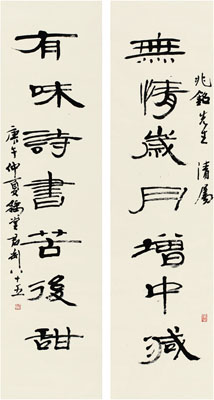 兆銘先生 清屬
無情歲月增中減
有味詩書苦後甜
庚午仲夏
八十五